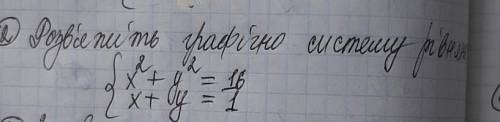 2 Розв'яжіть графічно систему рівнян
x² + y² = 16
x + y = 1